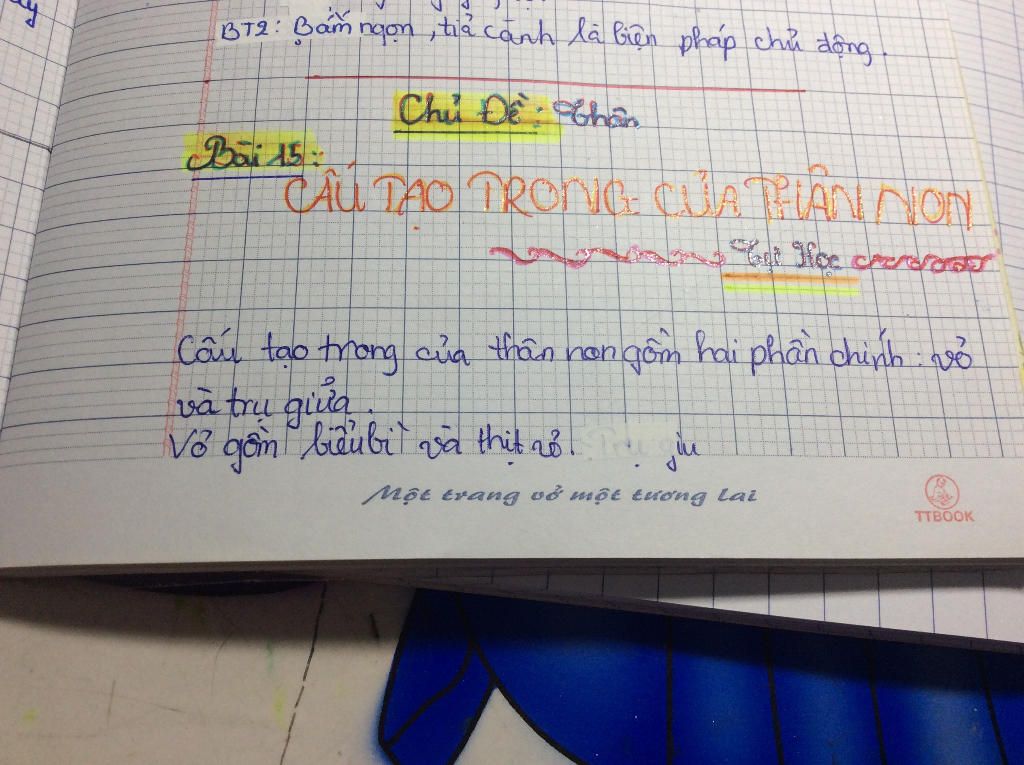 BT2: Bấm ngọn, tỉa cành là biện pháp chủ động.
Chủ Đề: Thân
Bài 15:
CẤU TẠO TRONG CỦA THÂN NON
Tự Học
Cấu tạo trong của thân non gồm hai phần chính: vỏ
và trụ giữa.
Vỏ gồm biểu bì và thịt vỏ.
Một trang vở một tương lai
TTBOOK